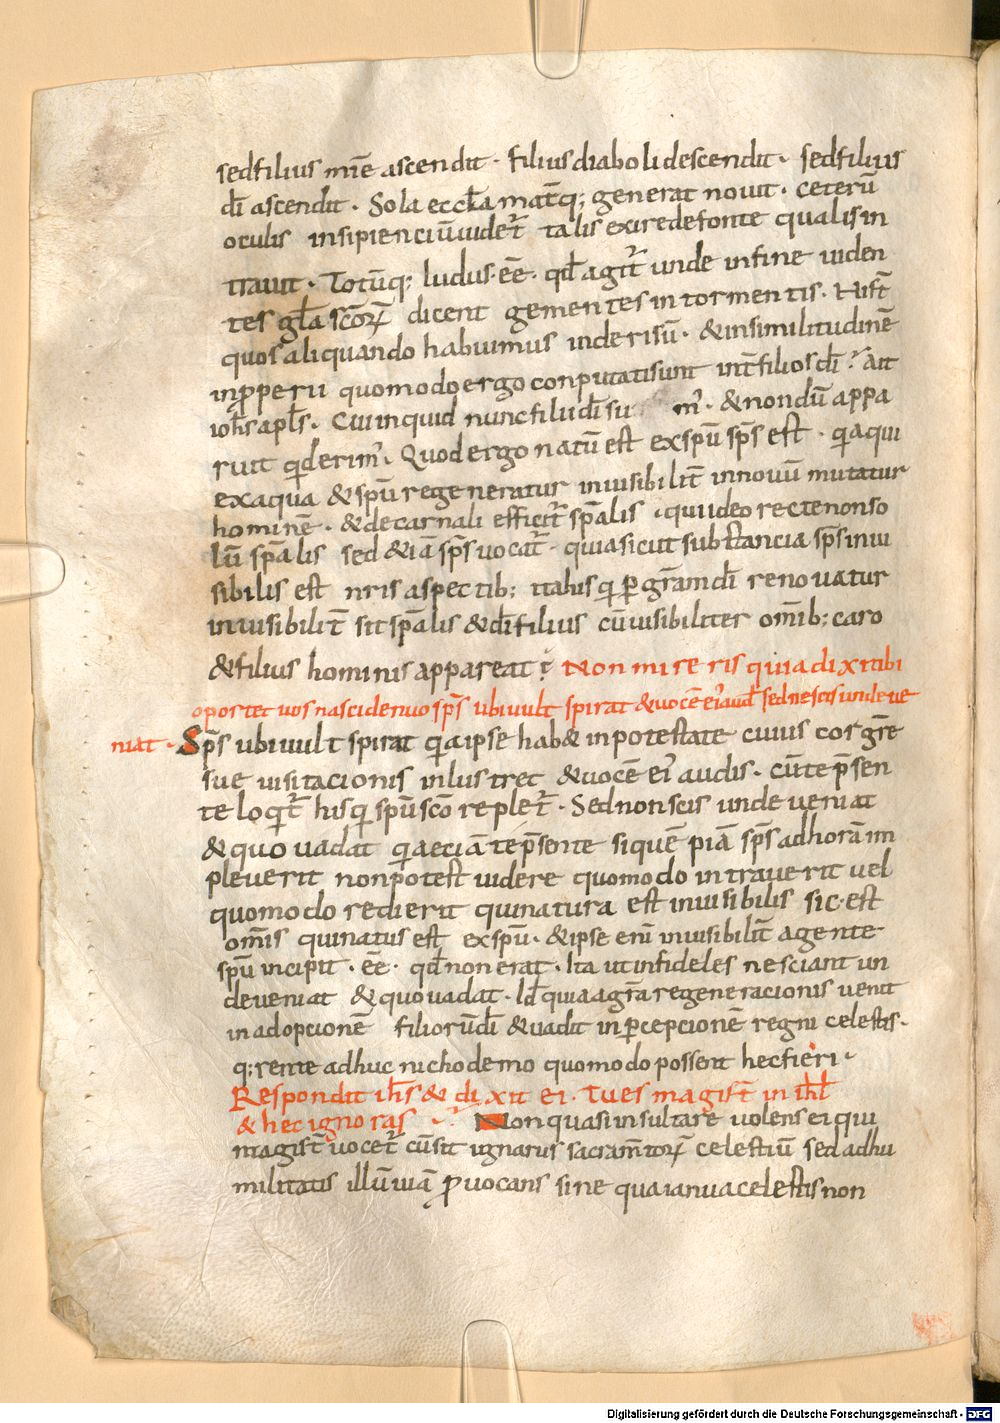 sedfilius mr̄e ascendit · filius diaboli descendit · sed filius
dī ascendit · Sola eccl̄a mat̄q; generat novit · ceterū
oculis insipienciū videt̄ talis exire de fonte qualis in
travit · Totūq; ludus · eē · qđ agit̄ unde in fine viden
tes gl̄a scōꝝ dicent gementes in tormentis · Hi st̄
quos aliquando habuimus inderisū · & in similitudinē
inꝓperii quomodo ergo conputati sunt int̄ filios dī · Ait
ioh̄s apl̄s · Cui inquid nunc filii dī su m᷒ · & nondū appa
ruit qd erim᷒ · Quod ergo natū est ex spū sp̄s est · q̄a qui
ex aqua & spū regeneratur invisibilit̄ in novū mutatur
hominē · & de carnali efficit̄ sp̄alis · qui ideo recte non so
lū sp̄alis sed & iā sp̄s vocat̄ · quia sicut substancia sp̄s invi
sibilis est nr̄is aspectib; ita his qi ꝑ grām dī renovatur
invisibilit̄ sit sp̄alis & dī filius cū visibiliter om̄ib; caro
& filius hominis appareat · Non mireris quia dixi tibi
oportet vos nasci denuo sp̄s ubi vult spirat & vocē ei᷒ aud̄ sed nescis unde ve
niat · Sp̄s ubi vult spirat q̄a ipse hab& in potestate cuius cor gr̄e
sue visitacionis inlustret & vocē ei᷒ audis · cū te p̄sen
te loqt̄ his qi spū scō replet̄ · Sed non scis unde veniat
& quo vadat q̄a eciā te p̄sente si quē piā sp̄s ad horā im
pleverit non potest videre quomodo intraverit vel
quomodo redierit quia natura est invisibilis sic · est
om̄is qui natus est ex spū · & ipse enī invisibilit̄ agente
spū incipit · eē · qđ non erat · Ita ut infideles nesciant un
de veniat & quo vadat · Id̄ quia a grā regeneracionis venit
in adopcionē filiorū dī & vadit in ꝑcepcionē regni celestis ·
q;rente adhuc nichodemo quomodo possent hec fieri ·
Respondit ih̄s & dixit ei · Tu es magist̄ in ihl̄
& hec ignoras · Non quasi insultare volens ei qui
magist̄ vocet̄ cū sit ignarus sacramtorꝝ celestiū sed ad hu
militatis illū viā ꝓvocans sine qua ianua celestis non
Digitalisierung gefördert durch die Deutsche Forschungsgemeinschaft - DFG